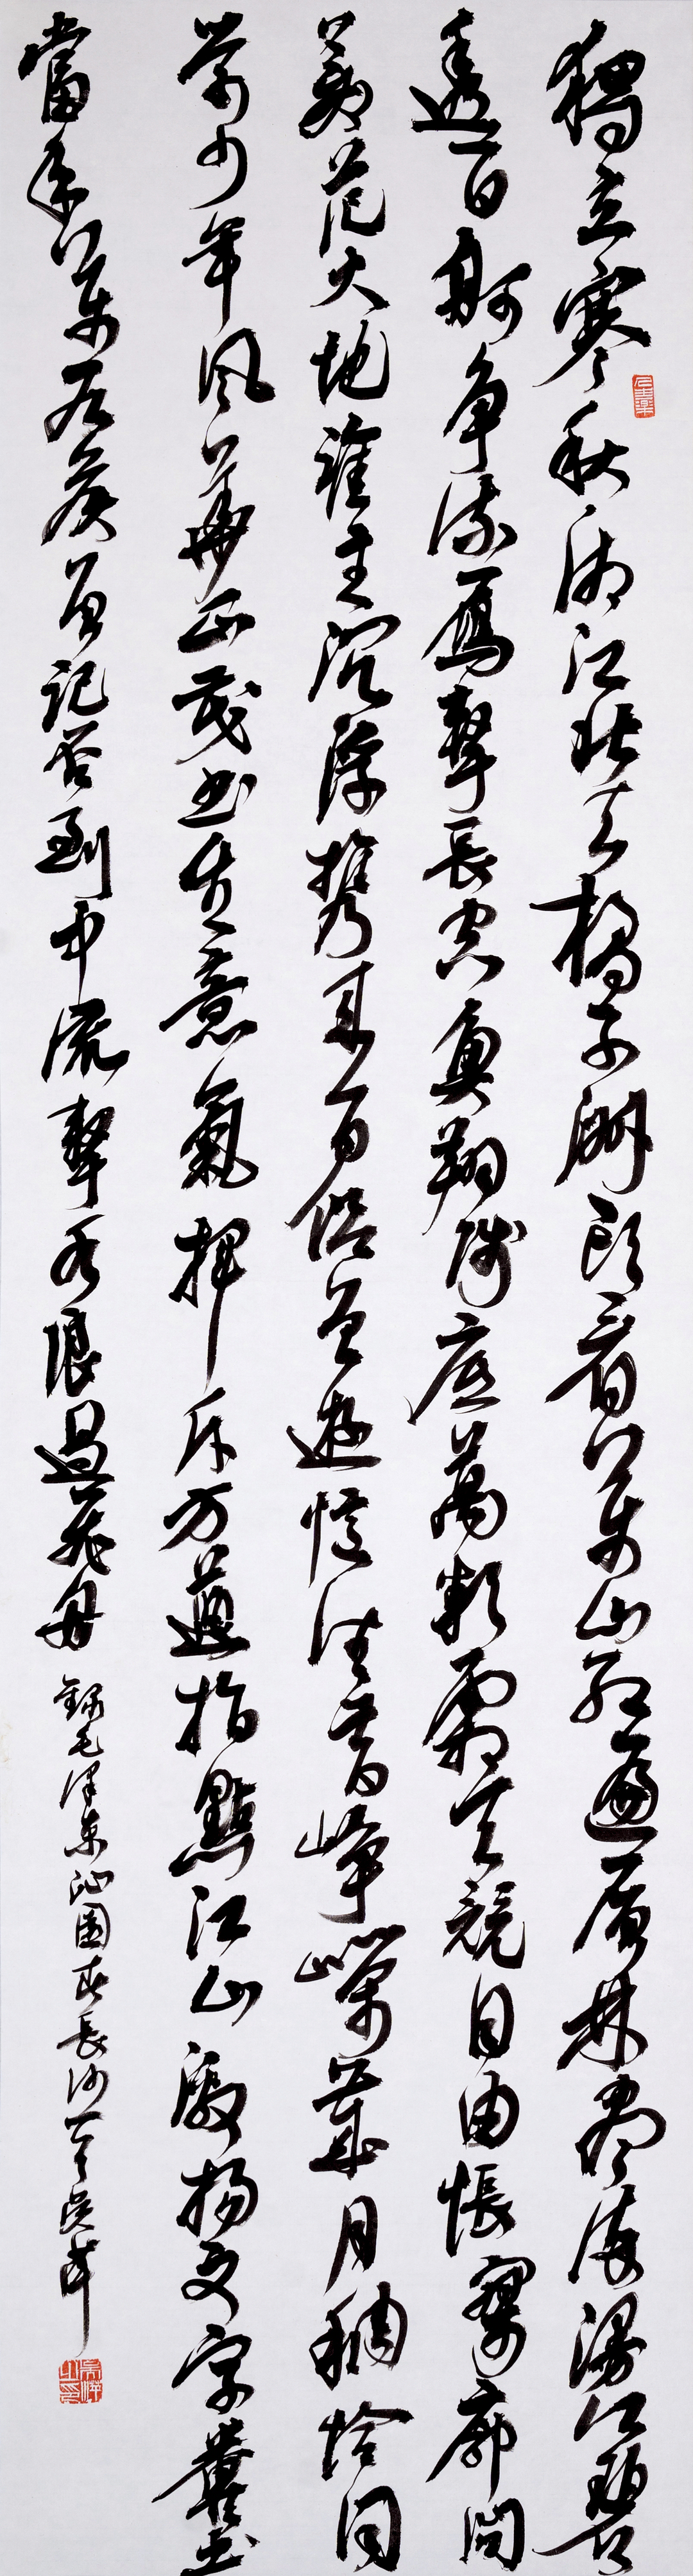 獨立寒秋湘江北去橘子洲頭看萬山紅遍層林盡染漫江碧
透百舸爭流鷹擊長空魚翔淺底萬類霜天競自由悵寥廓問
蒼茫大地誰主沉浮携來百侶曾遊憶往昔崢嶸歲月稠恰同
學少年風華正茂書生意氣揮斥方遒指點江山激揚文字糞土
當年萬户侯曾記否到中流擊水浪遏飛舟 錄毛澤東沁園春長沙